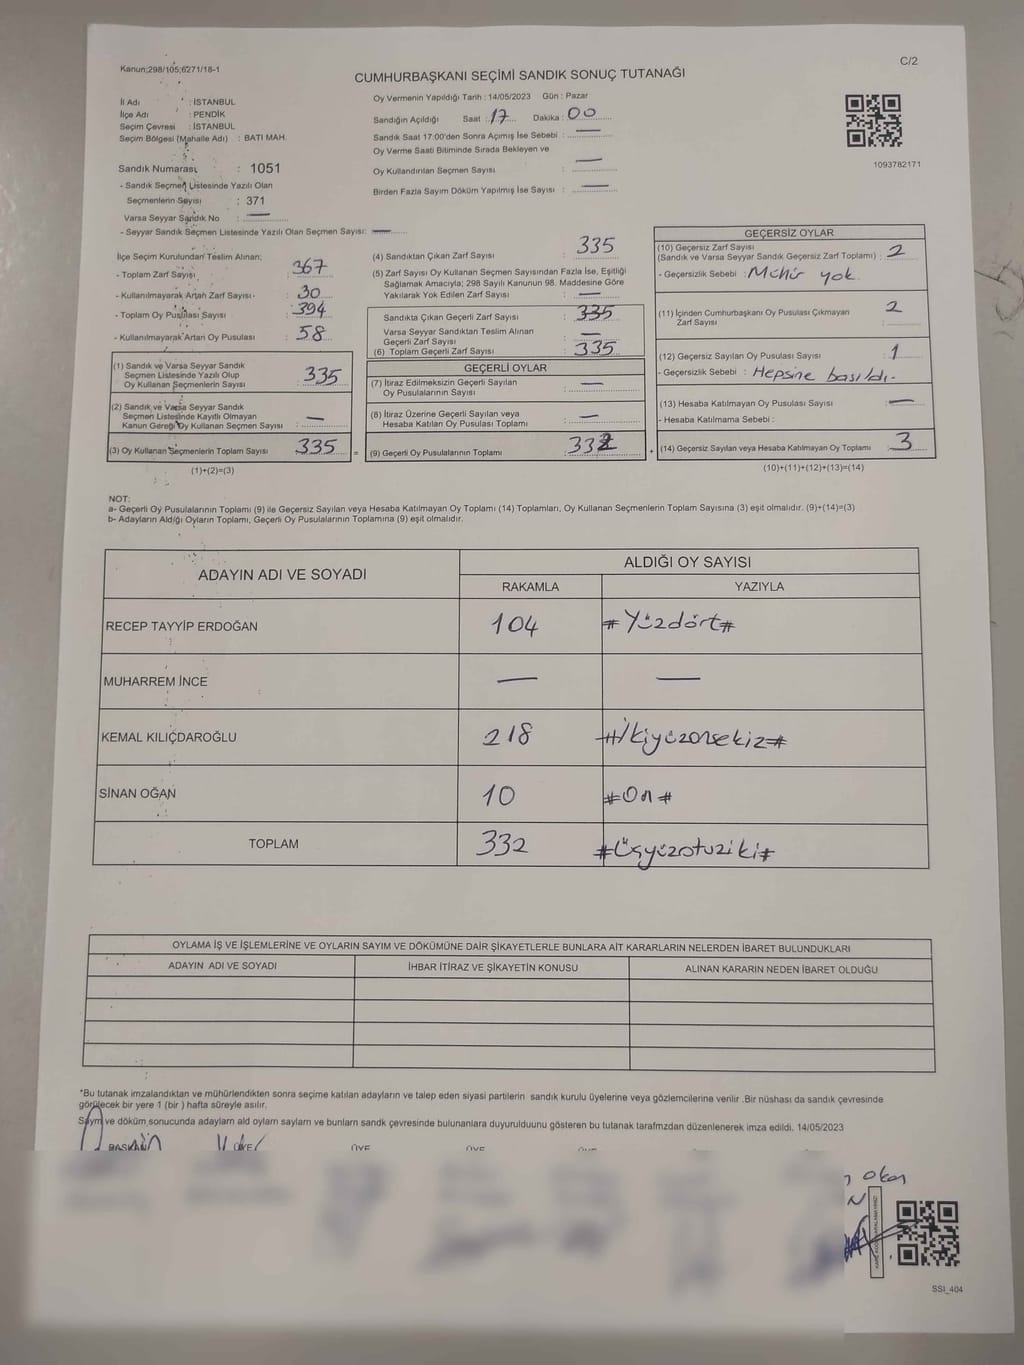 Kanun;298/105;6271/18-1
C/2
CUMHURBAŞKANI SEÇİMİ SANDIK SONUÇ TUTANAĞI
İl Adı : İSTANBUL
İlçe Adı : PENDİK
Seçim Çevresi : İSTANBUL
Seçim Bölgesi (Mahalle Adı) : BATI MAH.
Oy Vermenin Yapıldığı Tarih : 14/05/2023 Gün : Pazar
Sandığın Açıldığı Saat : 17 Dakika : 00
Sandık Saat 17:00'den Sonra Açımış İse Sebebi : —
Oy Verme Saati Bitiminde Sırada Bekleyen ve
Oy Kullandırılan Seçmen Sayısı : —
Birden Fazla Sayım Döküm Yapılmış İse Sayısı : —
1093782171
Sandık Numarası : 1051
- Sandık Seçmen Listesinde Yazılı Olan
Seçmenlerin Sayısı : 371
Varsa Seyyar Sandık No : —
- Seyyar Sandık Seçmen Listesinde Yazılı Olan Seçmen Sayısı: —
İlçe Seçim Kurulundan Teslim Alınan;
- Toplam Zarf Sayısı : 367
- Kullanılmayarak Artan Zarf Sayısı : 30
- Toplam Oy Pusulası Sayısı : 394
- Kullanılmayarak Artan Oy Pusulası : 58
(1) Sandık ve Varsa Seyyar Sandık
Seçmen Listesinde Yazılı Olup
Oy Kullanan Seçmenlerin Sayısı : 335
(2) Sandık ve Varsa Seyyar Sandık
Seçmen Listesinde Kayıtlı Olmayan
Kanun Gereği Oy Kullanan Seçmen Sayısı : —
(3) Oy Kullanan Seçmenlerin Toplam Sayısı : 335 =
(1)+(2)=(3)
(4) Sandıktan Çıkan Zarf Sayısı : 335
(5) Zarf Sayısı Oy Kullanan Seçmen Sayısından Fazla İse, Eşitliği
Sağlamak Amacıyla; 298 Sayılı Kanunun 98. Maddesine Göre
Yakılarak Yok Edilen Zarf Sayısı : —
Sandıkta Çıkan Geçerli Zarf Sayısı : 335
Varsa Seyyar Sandıktan Teslim Alınan
Geçerli Zarf Sayısı : —
(6) Toplam Geçerli Zarf Sayısı : 335
GEÇERLİ OYLAR
(7) İtiraz Edilmeksizin Geçerli Sayılan
Oy Pusulalarının Sayısı : —
(8) İtiraz Üzerine Geçerli Sayılan veya
Hesaba Katılan Oy Pusulası Toplamı : —
(9) Geçerli Oy Pusulalarının Toplamı : 332 +
GEÇERSİZ OYLAR
(10) Geçersiz Zarf Sayısı
(Sandık ve Varsa Seyyar Sandık Geçersiz Zarf Toplamı) : 2
- Geçersizlik Sebebi : Mühür yok
(11) İçinden Cumhurbaşkanı Oy Pusulası Çıkmayan
Zarf Sayısı : 2
(12) Geçersiz Sayılan Oy Pusulası Sayısı : 1
- Geçersizlik Sebebi : Hepsine basıldı.
(13) Hesaba Katılmayan Oy Pusulası Sayısı : —
- Hesaba Katılmama Sebebi :
(14) Geçersiz Sayılan veya Hesaba Katılmayan Oy Toplamı : 3
(10)+(11)+(12)+(13)=(14)
NOT:
a- Geçerli Oy Pusulalarının Toplamı (9) ile Geçersiz Sayılan veya Hesaba Katılmayan Oy Toplamı (14) Toplamları, Oy Kullanan Seçmenlerin Toplam Sayısına (3) eşit olmalıdır. (9)+(14)=(3)
b- Adayların Aldığı Oyların Toplamı, Geçerli Oy Pusulalarının Toplamına (9) eşit olmalıdır.
ADAYIN ADI VE SOYADI
ALDIĞI OY SAYISI
RAKAMLA YAZIYLA
RECEP TAYYİP ERDOĞAN 104 #Yüzdört#
MUHARREM İNCE — —
KEMAL KILIÇDAROĞLU 218 #İkiyüzonsekiz#
SİNAN OĞAN 10 #On#
TOPLAM 332 #Üçyüzotuziki#
OYLAMA İŞ VE İŞLEMLERİNE VE OYLARIN SAYIM VE DÖKÜMÜNE DAİR ŞİKAYETLERLE BUNLARA AİT KARARLARIN NELERDEN İBARET BULUNDUKLARI
ADAYIN ADI VE SOYADI İHBAR İTİRAZ VE ŞİKAYETİN KONUSU ALINAN KARARIN NEDEN İBARET OLDUĞU
*Bu tutanak imzalandıktan ve mühürlendikten sonra seçime katılan adayların ve talep eden siyasi partilerin sandık kurulu üyelerine veya gözlemcilerine verilir .Bir nüshası da sandık çevresinde
görülecek bir yere 1 (bir ) hafta süreyle asılır.
Sayım ve döküm sonucunda adayların ald oyların sayları ve bunların sandık çevresinde bulunanlara duyurulduunu gösteren bu tutanak tarafmzdan düzenlenerek imza edildi. 14/05/2023
BAŞKAN ÜYE ÜYE ÜYE
SSI_404